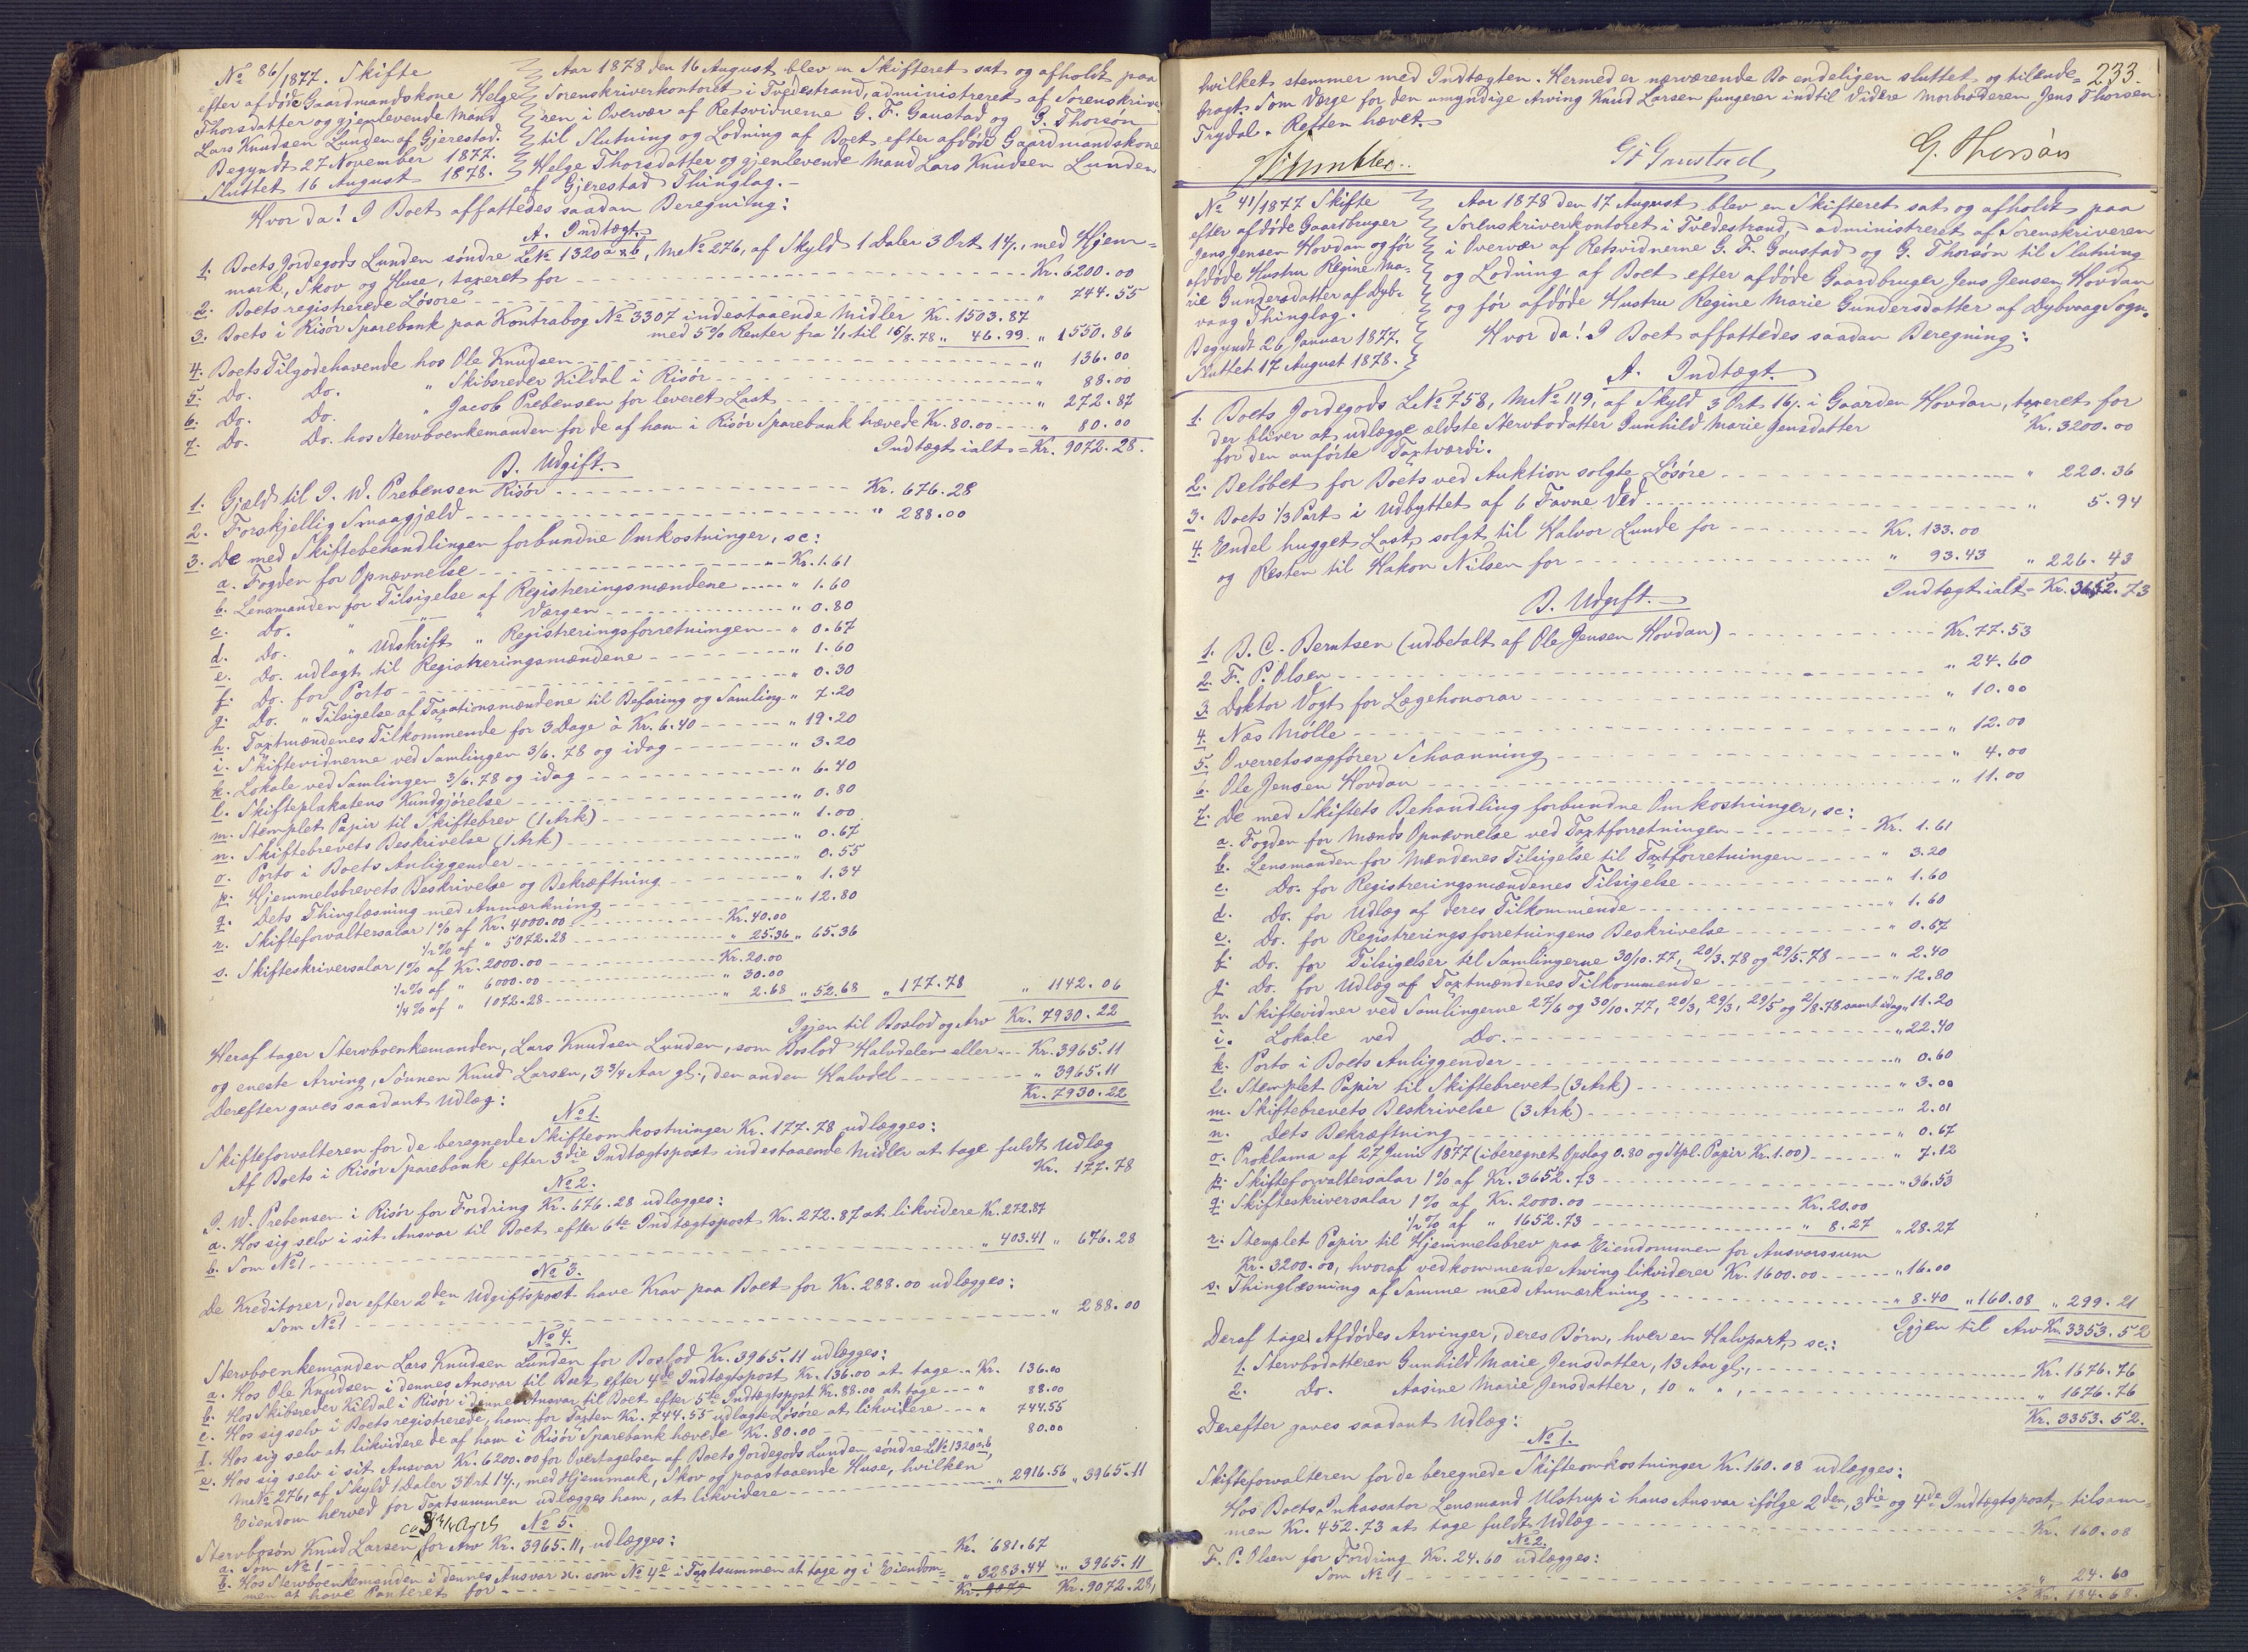 No 86/1877. Skifte
efter afdøde Gaardmandskone Helge
Thorsdatter og gjenlevende Mand
Lars Knudsen Lunden af Gjerestad.
Begyndt 27 November 1877.
Sluttet 16 August 1878.
Aar 1878 den 16 August blev en Skifteret sat og afholdt paa
Sorenskriverkontoret i Tvedestrand, administreret af Sorenskrive-
ren i Overvær af Retsvidnerne G. F. Gaustad og G. Thorsøn
til Slutning og Lodning af Boet efter afdøde Gaardmandskone
Helge Thorsdatter og gjenlevende Mand Lars Knudsen Lunden
af Gjerestad Thinglag.-
Hvor da! I Boet affattedes saadan Beregning:
A. Indtægt.
1. Boets Jordegods Lunden søndre LNo 1320 a & b, MNo 276, af Skyld 1 Daler 3 Ort 1 /., med Hjem=
mark, Skov og Huse, taxeret for - - - Kr. 6200.00
2. Boets registrerede Løsøre - - - " 744.55
3. Boets i Risør Sparebank paa Kontrabog No 3307 indestaaende Midler Kr. 1503.87
med 5% Renter fra 1/1 til 16/8.78 " 46.99. " 1550.86
4. Boets Tilgodehavende hos Ole Knudsen - - - " 136.00
5. Do. Do. " Skibsreder Kildal i Risør - - - " 88.00
6. Do. Do. " Jacob Prebensen for leveret Last - - - " 272.87
7. Do. Do. hos Stervboenkemanden for de af ham i Risør Sparebank hævede Kr. 80.00 - - - " 80.00
Indtægt ialt = Kr. 9072.28.
B. Udgift.
1. Gjæld til J. W. Prebensen Risør - - - Kr. 676.28
2. Forskjellig Smaagjæld - - - " 288.00
3. De med Skiftebehandlingen forbundne Omkostninger, sc:
a. Fogden for Opnævnelse - - - Kr. 1.61
b. Lensmanden for Tilsigelse af Registreringsmændene - - - " 1.60
c. Do. " " " Værgen - - - " 0.80
d. Do. " Udskrift " Registreringsforretningen - - " 0.67
e. Do. udlagt til Registreringsmændene - - - " 1.60
f. Do. for Porto - - - " 0.30
g. Do. " Tilsigelse af Taxationsmændene til Befaring og Samling - " 7.20
h. Taxtmændenes Tilkommende for 3 Dage à Kr. 6.40 - - - " 19.20
i. Skiftevidnerne ved Samlingen 3/6.78 og idag - - - " 3.20
k. Lokale ved Samlingen 3/6.78 og idag - - - " 6.40
l. Skifteplakatens Kundgjørelse - - - " 0.80
m. Stemplet Papir til Skiftebrev (1 Ark) - - - " 1.00
n. Skiftebrevets Beskrivelse (1 Ark) - - - " 0.67
o. Porto i Boets Anliggender - - - " 0.55
p. Hjemmelsbrevets Beskrivelse og Bekræftning - - - " 1.34
q. Dets Thinglæsning med Anmærkning - - - " 12.80
r. Skifteforvaltersalar 1% af Kr. 4000.00 - - - Kr. 40.00
1/2% af " 5072.28 - - - " 25.36 " 65.36
s. Skifteskriversalar 1% af Kr. 2000.00 - - - Kr. 20.00
1/2% af " 6000.00 - - - " 30.00
1/4% af " 1072.28 - - - " 2.68 " 52.68 " 177.78 " 1142.06
Igjen til Boslod og Arv Kr. 7930.22
Heraf tager Stervboenkemanden, Lars Knudsen Lunden, som Boslod Halvdelen eller - - Kr. 3965.11
og eneste Arving, Sønnen Knud Larsen, 3 3/4 Aar gl., den anden Halvdel - - - " 3965.11
Kr. 7930.22
Derefter gaves saadant Udlæg:
No 1.
Skifteforvalteren for de beregnede Skifteomkostninger Kr. 177.78 udlægges:
Af Boets i Risør Sparebank efter 3die Indtægtspost indestaaende Midler at tage fuldt Udlæg
Kr. 177.78
No 2.
J. W. Prebensen i Risør for Fordring Kr. 676.28 udlægges:
a. Hos sig selv i sit Ansvar til Boet efter 6te Indtægtspost Kr. 272.87 at likvidere Kr. 272.87
b. Som No 1 - - - " 403.41 " 676.28
No 3.
De Kreditorer, der efter 2den Udgiftspost have Krav paa Boet for Kr. 288.00 udlægges:
Som No 1 - - - " 288.00
No 4.
Stervboenkemanden Lars Knudsen Lunden for Boslod Kr. 3965.11 udlægges:
a. Hos Ole Knudsen i dennes Ansvar til Boet efter 4de Indtægtspost Kr. 136.00 at tage - - Kr. 136.00
b. Hos Skibsreder Kildal i Risør i dennes Ansvar til Boet efter 5te Indtægtspost Kr. 88.00 at tage - - - " 88.00
c. Hos sig selv i Boets registrerede, ham for Taxten Kr. 744.55 udlagte Løsøre at likvidere - - - " 744.55
d. Hos sig selv at likvidere de af ham i Risør Sparebank hævede Kr. 80.00 - - - " 80.00
e. Hos sig selv i sit Ansvar Kr. 6200.00 for Overtagelsen af Boets Jordegods Lunden søndre LNo 1320 a & b,
MNo 276, af Skyld 1 Daler 3 Ort 1 /., med Hjemmark, Skov og paastaaende Huse, hvilken
Eiendom herved for Taxtsummen udlægges ham, at likvidere - - - " 2916.56 " 3965.11
No 5.
Stervbosøn Knud Larsen for Arv Kr. 3965.11, udlægges:
a. Som No 1 - - - Kr. 681.67
b. Hos Stervboenkemanden i dennes Ansvar &c. som No 4e i Taxtsummen at tage og i Eiendom=
men at have Panteret for - - - " 3283.44 " 3965.11
Kr. 9072.28,
233.
hvilket stemmer med Indtægten. Hermed er nærværende Bo endeligen sluttet og tilende=
bragt. Som Værge for den umyndige Arving Knud Larsen fungerer indtil Videre Morbroderen Jens Thorsen
Trydal. Retten hævet.
G F Gaustad G. Thorsøn
No 41/1877 Skifte
efter afdøde Gaardbruger
Jens Jensen Hovdan og før
afdøde Hustru Regine Ma-
rie Gundersdatter af Dyb-
vaag Thinglag.
Begyndt 26 Januar 1877.
Sluttet 17 August 1878.
Aar 1878 den 17 August blev en Skifteret sat og afholdt paa
Sorenskriverkontoret i Tvedestrand, administreret af Sorenskriveren
i Overvær af Retsvidnerne G. F. Gaustad og G. Thorsøn til Slutning
og Lodning af Boet efter afdøde Gaardbruger Jens Jensen Hovdan
og før afdøde Hustru Regine Marie Gundersdatter af Dybvaag Sogn.
Hvor da! I Boet affattedes saadan Beregning:
A. Indtægt.
1. Boets Jordegods LNo 758, MNo 119, af Skyld 3 Ort 16 /. i Gaarden Hovdan, taxeret for
der bliver at udlægge ældste Stervbodatter Gunhild Marie Jensdatter Kr. 3200.00
for den anførte Taxtværdi.
2. Beløbet for Boets ved Auktion solgte Løsøre - - - " 220.36
3. Boets 1/3 Part i Udbyttet af 6 Favne Ved - - - " 5.94
4. Endel hugget Last, solgt til Halvor Lunde for - - - Kr. 133.00
og Resten til Hakon Nilsen for - - - " 93.43 " 226.43
Indtægt ialt = Kr. 3652.73
B. Udgift.
1. B. C. Berntsen (udbetalt af Ole Jensen Hovdan) - - - Kr. 77.53
2. F. P. Olsen - - - " 24.60
3. Doktor Vogt for Lægehonorar - - - " 10.00
4. Næs Mølle - - - " 12.00
5. Overretssagfører Schaanning - - - " 4.00
6. Ole Jensen Hovdan - - - " 11.00
7. De med Skiftets Behandling forbundne Omkostninger, sc:
a. Fogden for Mænds Opnævnelse ved Taxtforretningen - - - Kr. 1.61
b. Lensmanden for Mændenes Tilsigelse til Taxtforretningen - - - " 3.20
c. Do. for Registreringsmændenes Tilsigelse - - - " 1.60
d. Do. for Udlæg af deres Tilkommende - - - " 1.60
e. Do. for Registreringsforretningens Beskrivelse - - - " 0.67
f. Do. for Tilsigelser til Samlingerne 30/10.77, 20/3.78 og 29/5.78 - - - " 2.40
g. Do. for Udlæg af Taxtmændenes Tilkommende - - - " 12.80
h. Skiftevidner ved Samlingerne 27/6 og 30/10.77, 20/3, 29/3, 29/5 og 2/8.78 samt idag " 11.20
i. Lokale ved Do. - - - " 22.40
k. Porto i Boets Anliggender - - - " 0.60
l. Stemplet Papir til Skiftebrevet (3 Ark) - - - " 3.00
m. Skiftebrevets Beskrivelse (3 Ark) - - - " 2.01
n. Dets Bekræftning - - - " 0.67
o. Proklama af 27 Juni 1877 (iberegnet Opslag 0.80 og Stpl. Papir Kr. 1.00) - - - " 7.12
p. Skifteforvaltersalar 1% af Kr. 3652.73 - - - " 36.53
q. Skifteskriversalar 1% af Kr. 2000.00 - - - Kr. 20.00
1/2% af " 1652.73 - - - " 8.27 " 28.27
r. Stemplet Papir til Hjemmelsbrev paa Eiendommen for Ansvarssum
Kr. 3200.00, hvoraf vedkommende Arving likviderer Kr. 1600.00 - - - " 16.00
s. Thinglæsning af Samme med Anmærkning - - - " 8.40 " 160.08 " 299.21
Igjen til Arv Kr. 3353.52
Deraf tager Afdødes Arvinger, deres Børn, hver en Halvpart, sc:
1. Stervbodatteren Gunhild Marie Jensdatter, 13 Aar gl., - - - Kr. 1676.76
2. Do. Aasine Marie Jensdatter, 10 " " , - - - " 1676.76
Kr. 3353.52.
Derefter gaves saadant Udlæg:
No 1.
Skifteforvalteren for de beregnede Skifteomkostninger Kr. 160.08 udlægges:
Hos Boets Inkassator Lensmand Ulstrup i hans Ansvar ifølge 2den, 3die og 4de Indtægtspost, tilsam=
men Kr. 452.73 at tage fuldt Udlæg - - - Kr. 160.08
No 2.
F. P. Olsen for Fordring Kr. 24.60 udlægges:
Som No 1 - - - " 24.60
Kr. 184.68.